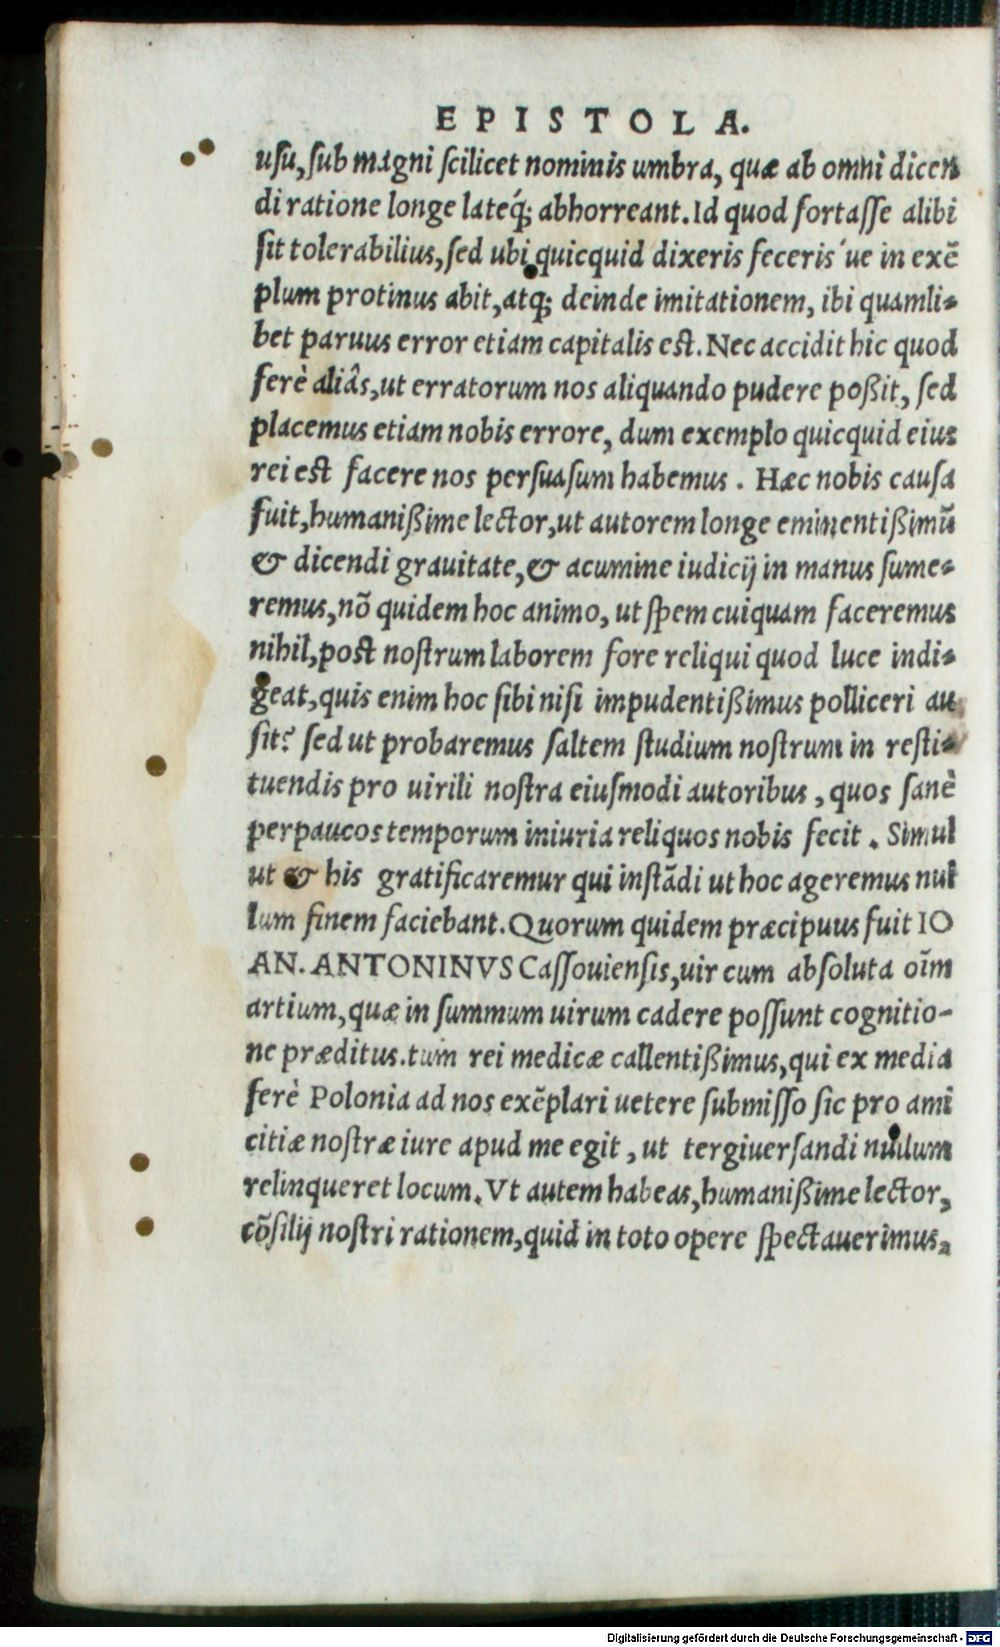 EPISTOLA.
usu, sub magni scilicet nominis umbra, quæ ab omni dicen
di ratione longe lateq́; abhorreant. Id quod fortasse alibi
sit tolerabilius, sed ubi quicquid dixeris feceris'ue in exẽ
plum protinus abit, atq; deinde imitationem, ibi quamli-
bet paruus error etiam capitalis est. Nec accidit hic quod
ferè aliâs, ut erratorum nos aliquando pudere poßit, sed
placemus etiam nobis errore, dum exemplo quicquid eius
rei est facere nos persuasum habemus. Hæc nobis causa
fuit, humanißime lector, ut autorem longe eminentißimũ
& dicendi grauitate, & acumine iudicij in manus sume-
remus, nõ quidem hoc animo, ut spem cuiquam faceremus
nihil, post nostrum laborem fore reliqui quod luce indi-
geat, quis enim hoc sibi nisi impudentißimus polliceri au
sit? sed ut probaremus saltem studium nostrum in resti-
tuendis pro uirili nostra eiusmodi autoribus, quos sanè
perpaucos temporum iniuria reliquos nobis fecit. Simul
ut & his gratificaremur qui instãdi ut hoc ageremus nul
lum finem faciebant. Quorum quidem præcipuus fuit IO
AN. ANTONINVS Cassouiensis, uir cum absoluta oĩm
artium, quæ in summum uirum cadere possunt cognitio-
ne præditus. tum rei medicæ callentißimus, qui ex media
ferè Polonia ad nos exẽplari uetere submisso sic pro ami
citiæ nostræ iure apud me egit, ut tergiuersandi nullum
relinqueret locum. Vt autem habeas, humanißime lector,
cõsilij nostri rationem, quid in toto opere spectauerimus,
Digitalisierung gefördert durch die Deutsche Forschungsgemeinschaft - DFG